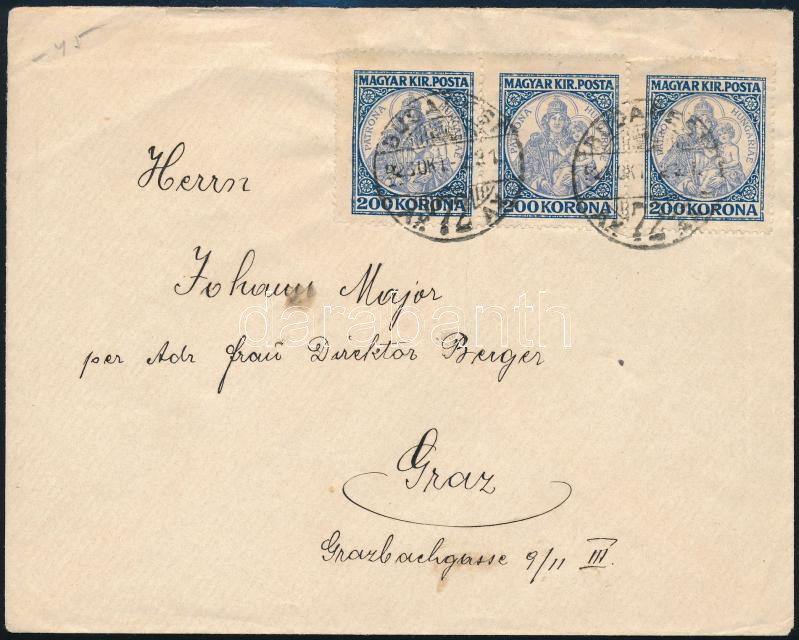 - 45
MAGYAR KIR. POSTA MAGYAR KIR. POSTA MAGYAR KIR. POSTA
PATRONA HUNGARIAE PATRONA HUNGARIAE PATRONA HUNGARIAE
BUDA BUDA
OKT OKT
72 72
200 KORONA 200 KORONA 200 KORONA
Herrn
Johann Major
darabanth
per Adr frau Direktor Berger
Graz
Grazbachgasse 9/II III.